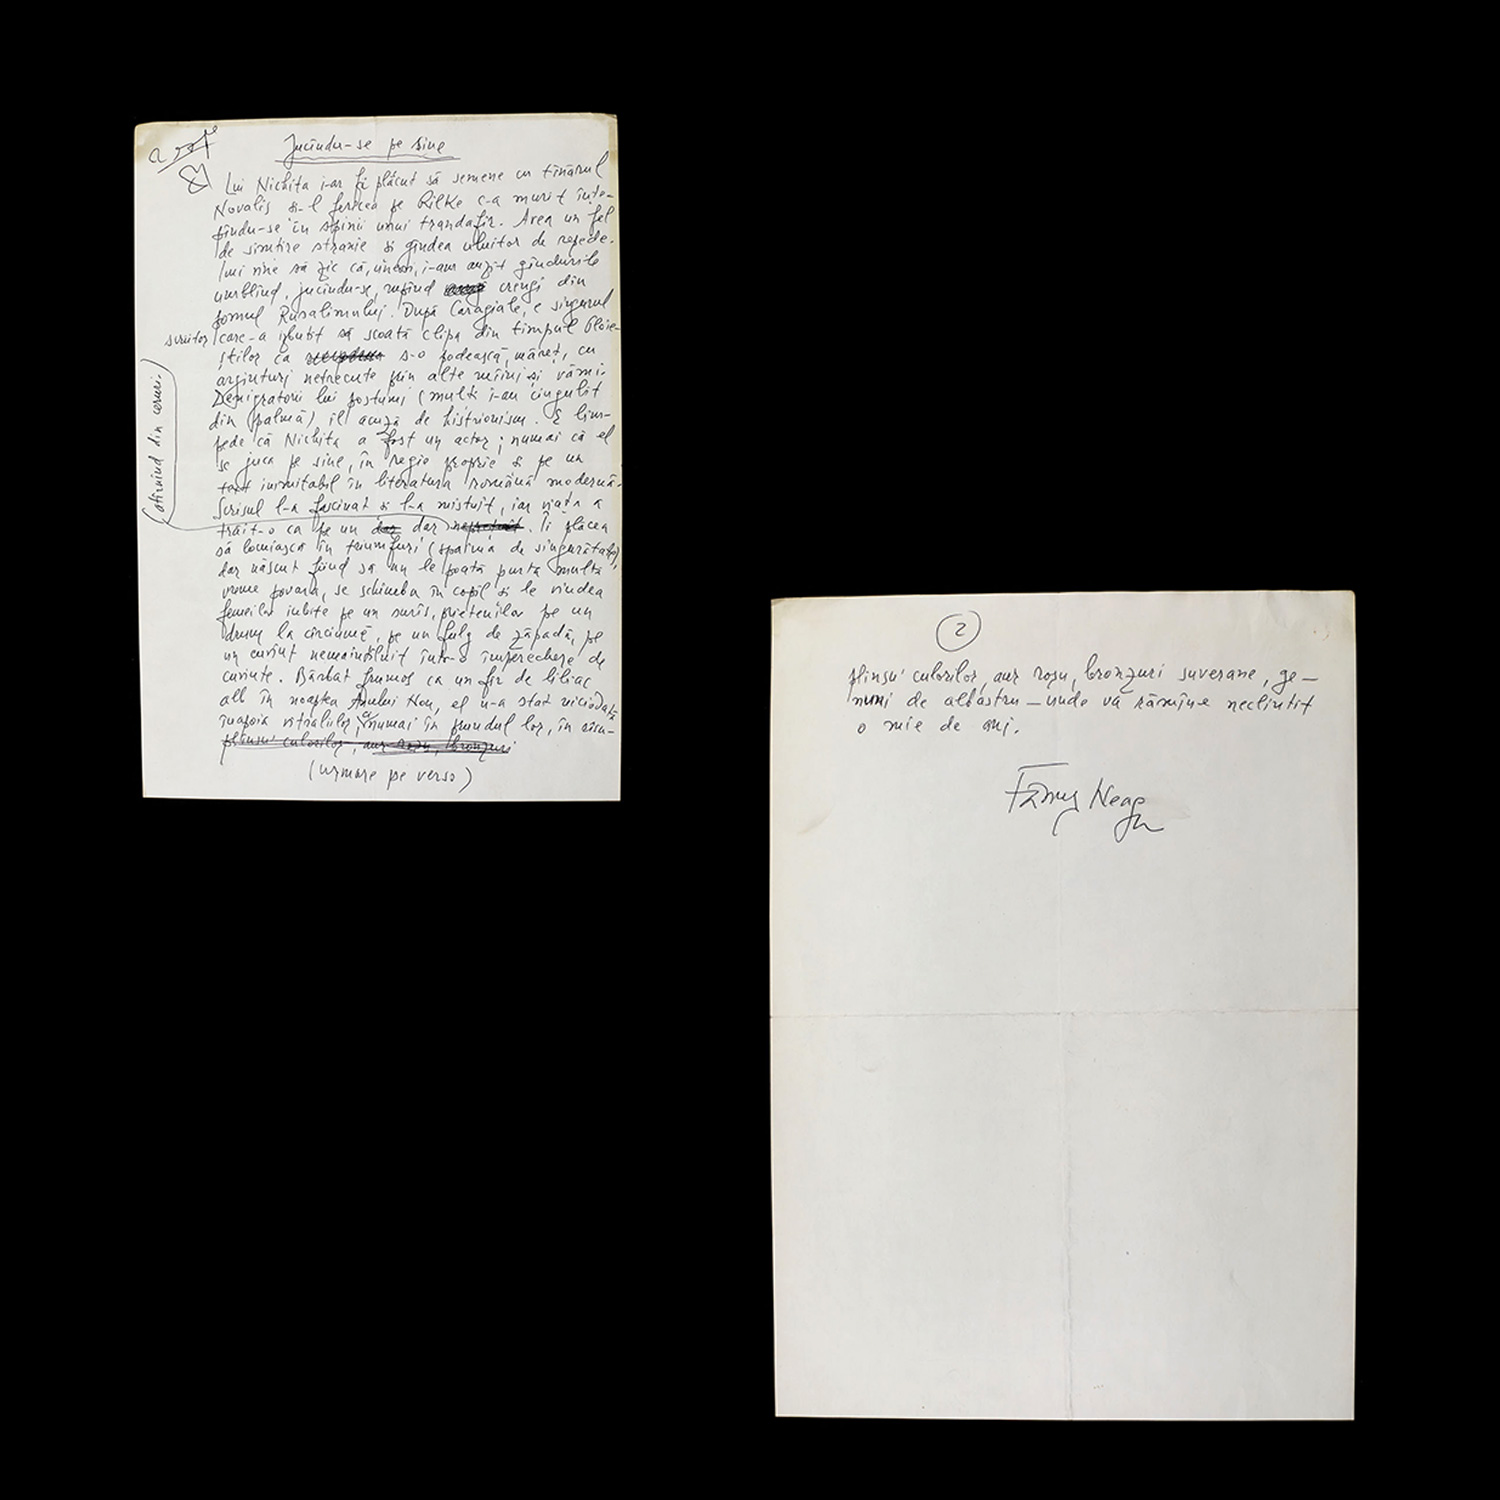 Jucîndu-se pe sine
Lui Nichita i-ar fi plăcut să semene cu tînărul
Novalis și-l fericea pe Rilke c-a murit înțe-
pîndu-se în spinii unui trandafir. Avea un fel
de simțire stranie și gîndea uluitor de repede.
Îmi vine să zic că, uneori, i-am auzit gîndurile
umblînd, jucîndu-se, rupînd crengi din
pomul Rusalimului. După Caragiale, e singurul
suritor care-a izbutit să scoată clipa din timpul Ploie-
știlor ca s-o podească, măreț, cu
arginturi netrecute prin alte mîini și vămi.
Denigratorii lui postumi (mulți i-au cingulit
din palmă) îl acuză de histrionism. E lim-
pede că Nichita a fost un actor; numai că el
se juca pe sine, în regie proprie și pe un
text inimitabil în literatura română modernă.
Scrisul l-a fascinat și l-a mistuit, iar viața a
trăit-o ca pe un dar dar
(atîrnînd din ceruri. Îi plăcea
să locuiască în triumfuri (spaima de singurătate),
dar născut fiind să nu le poată purta multă
vreme povara, se schimba în copil și le vindea
femeilor iubite pe un surîs, prietenilor pe un
drum la cîrciumă, pe un fulg de zăpadă, pe
un cuvînt nemaiîntîlnit într-o împerechere de
cuvinte. Bărbat frumos ca un fir de liliac
alb în noaptea Anului Nou, el n-a stat niciodată
înapoia vitraliilor, ci numai în fundul lor, în
plînsu' culorilor, aur roșu, bronzuri
(urmare pe verso)
2
plînsu' culorilor, aur roșu, bronzuri suverane, ge-
nuni de albastru — unde va rămîne neclintit
o mie de ani.
Fănuș Neagu